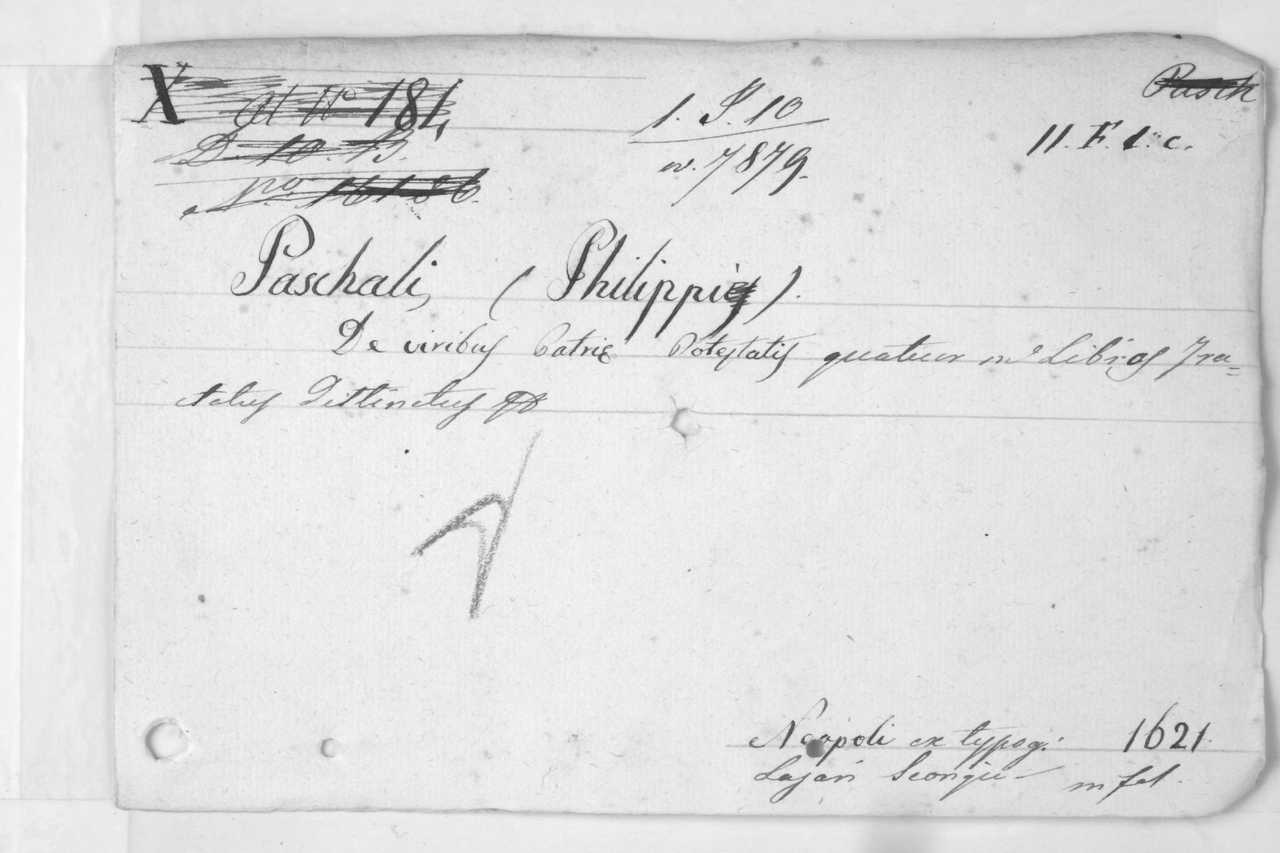 X 184
1. S. 10
n. 7879.
Pasch
11. F. 1. c.
Paschali (Philippi).
De viribus Patrię Potestatis quatuor in Libros Tra=
ctatus Distinctus
Neapoli ex typog: 1621.
Lazari Scorigii in fol.